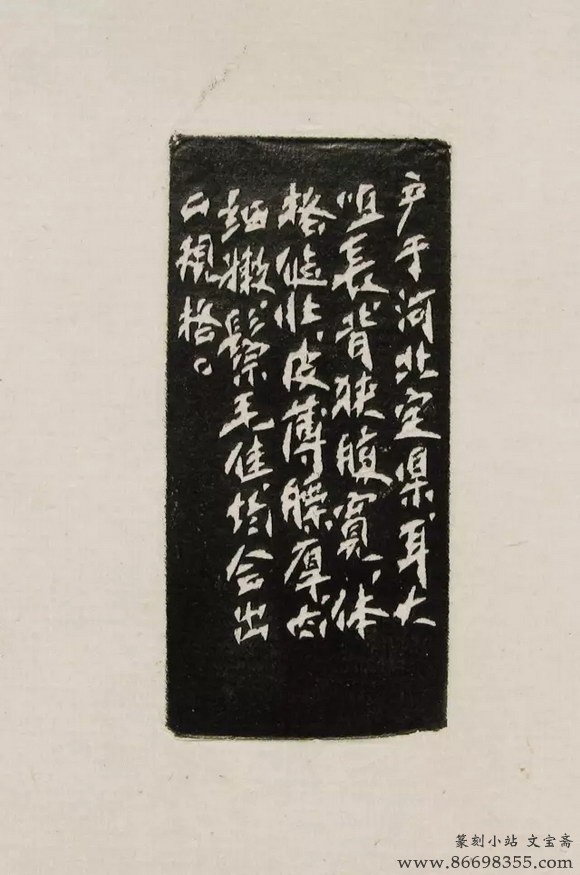 产于河北定县、耳大
咀长、背狭腹宽、体
格健壮、皮薄膘厚、肉
细嫩、鬃毛佳、均合出
口规格。
篆刻小站 文宝斋
www.86698355.com